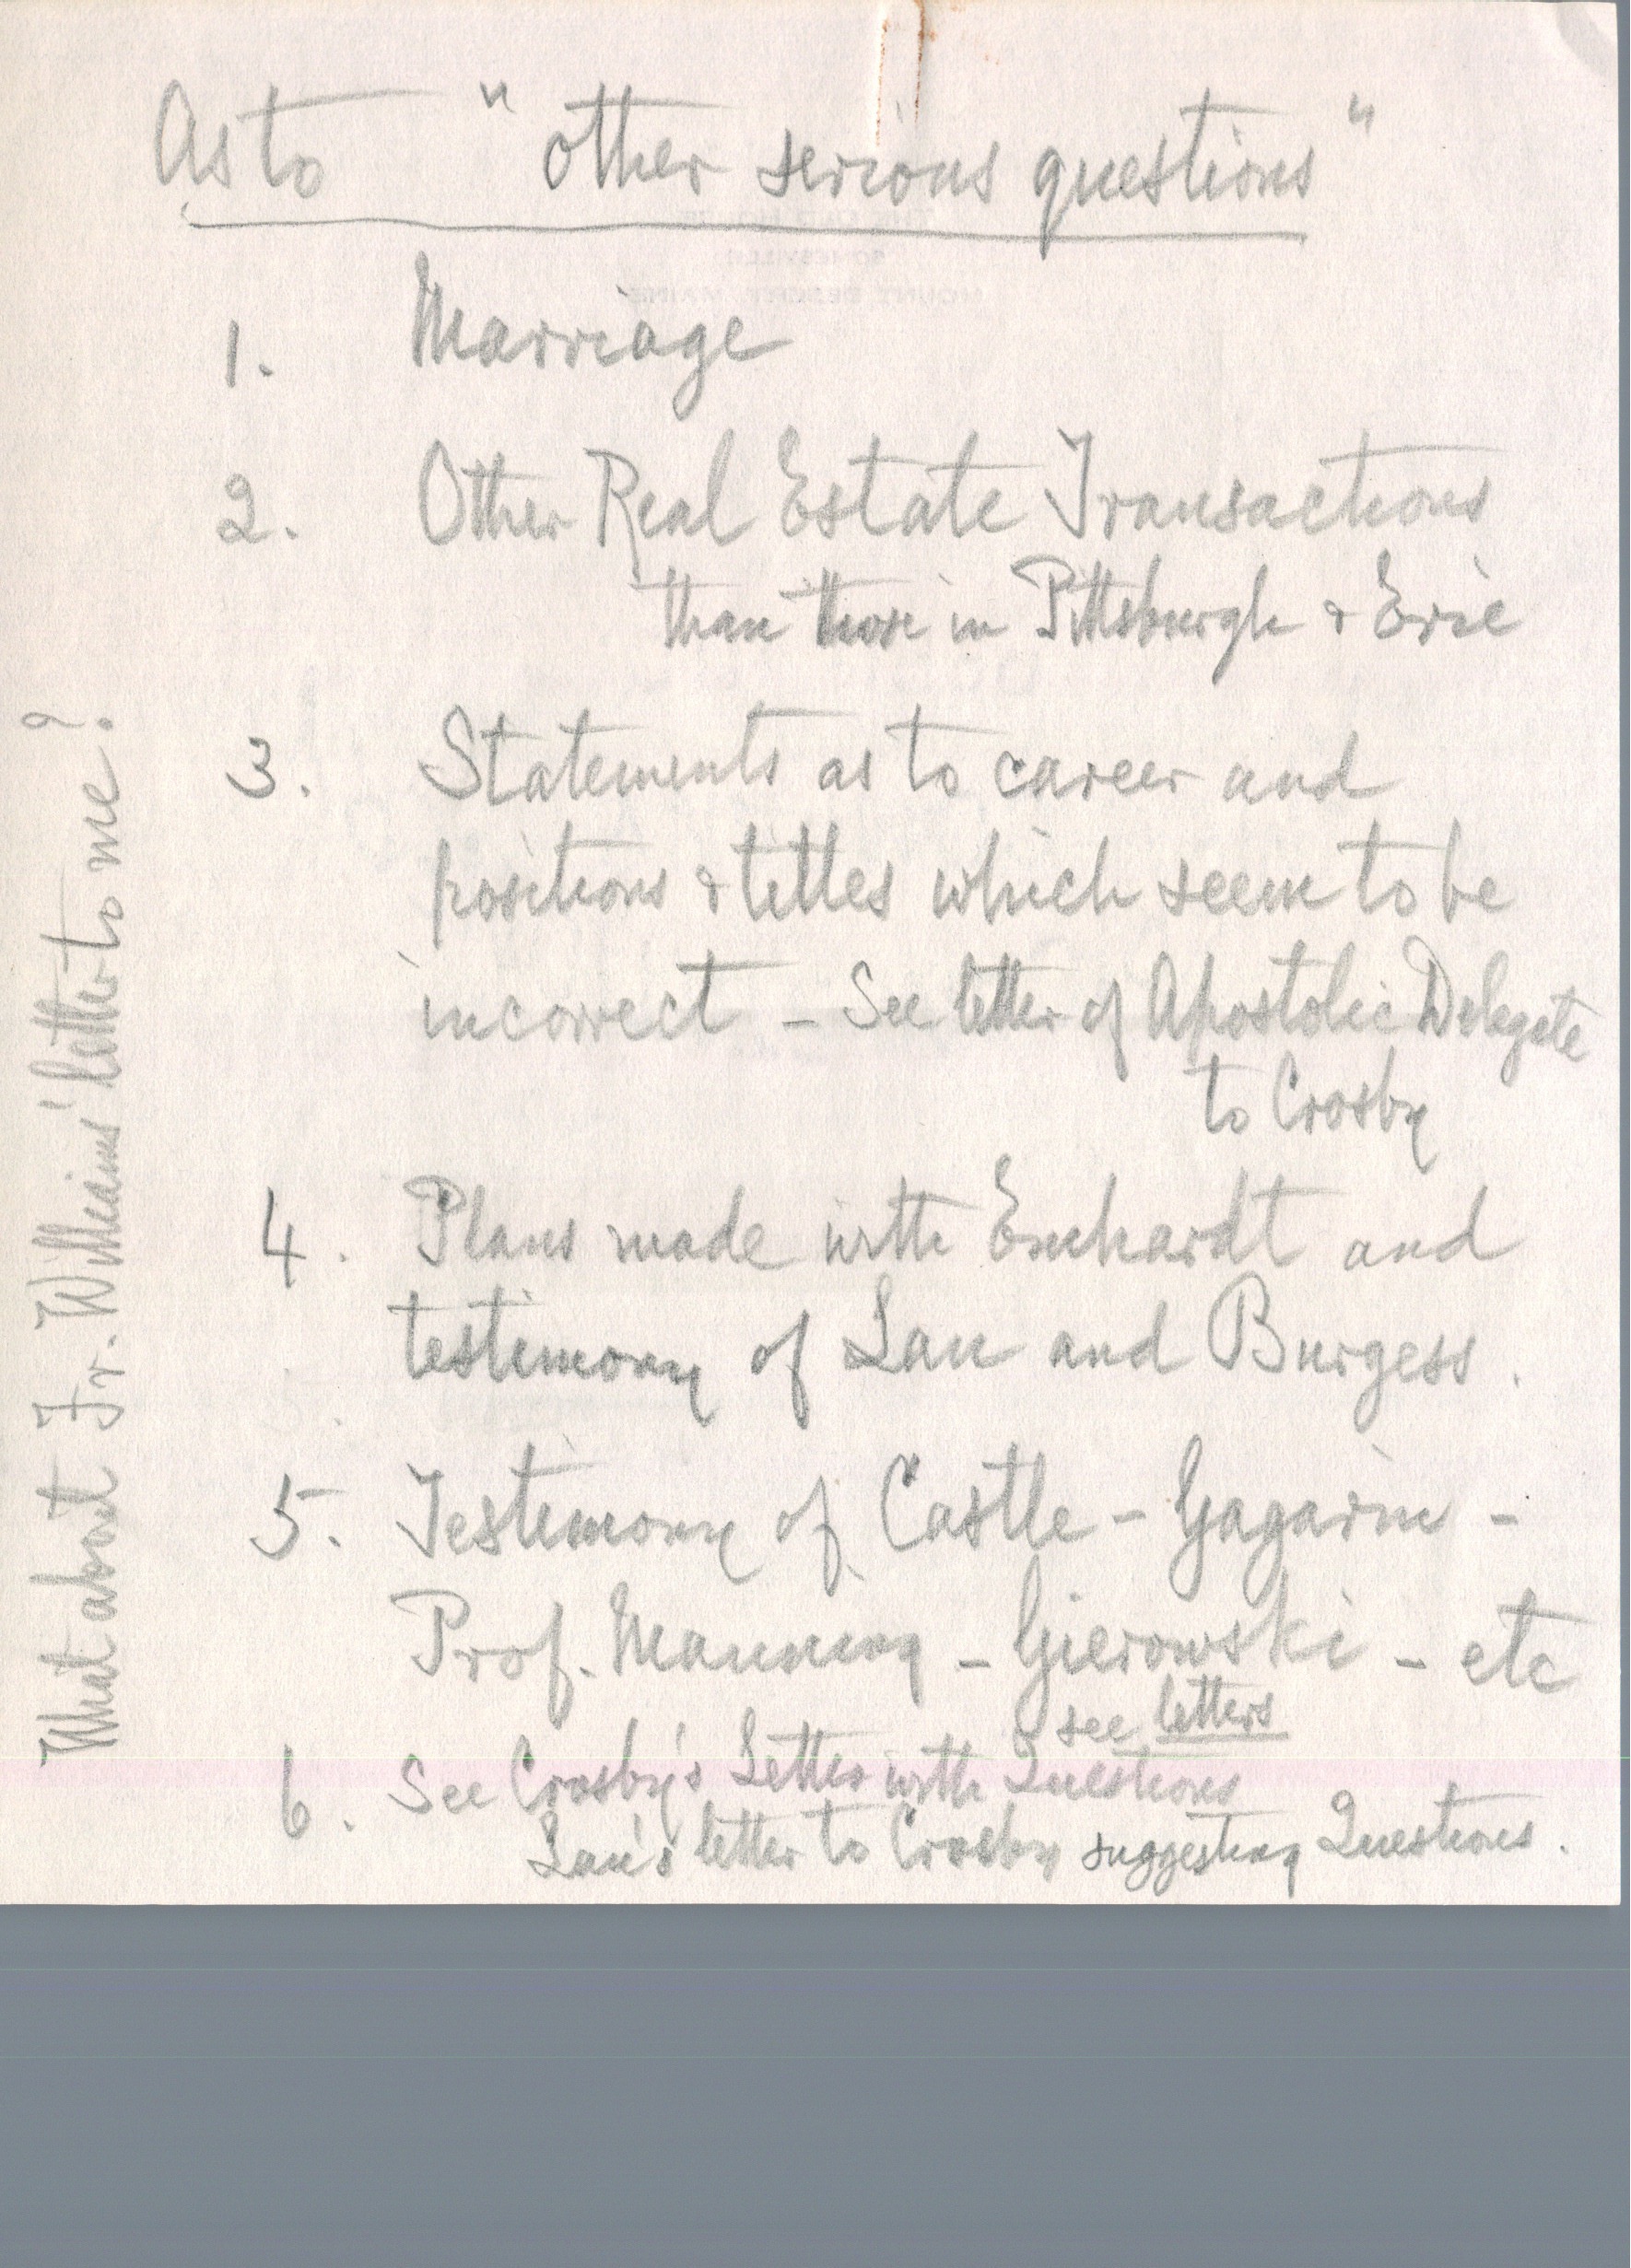 As to "other serious questions"
1. Marriage
2. Other Real Estate Transactions
than those in Pittsburgh & Erie
3. Statements as to career and
positions & titles which seem to be
incorrect - See letter of Apostolic Delegate
to Crosby
4. Plans made with Emhardt and
testimony of Lau and Burgess.
5. Testimony of Castle - Gagarin -
Prof. Manning - Gierowski - etc
see letters
6. See Crosby's Letter with Questions
Lau's letter to Crosby suggesting Questions.
What about Fr. Williams' letter to me?